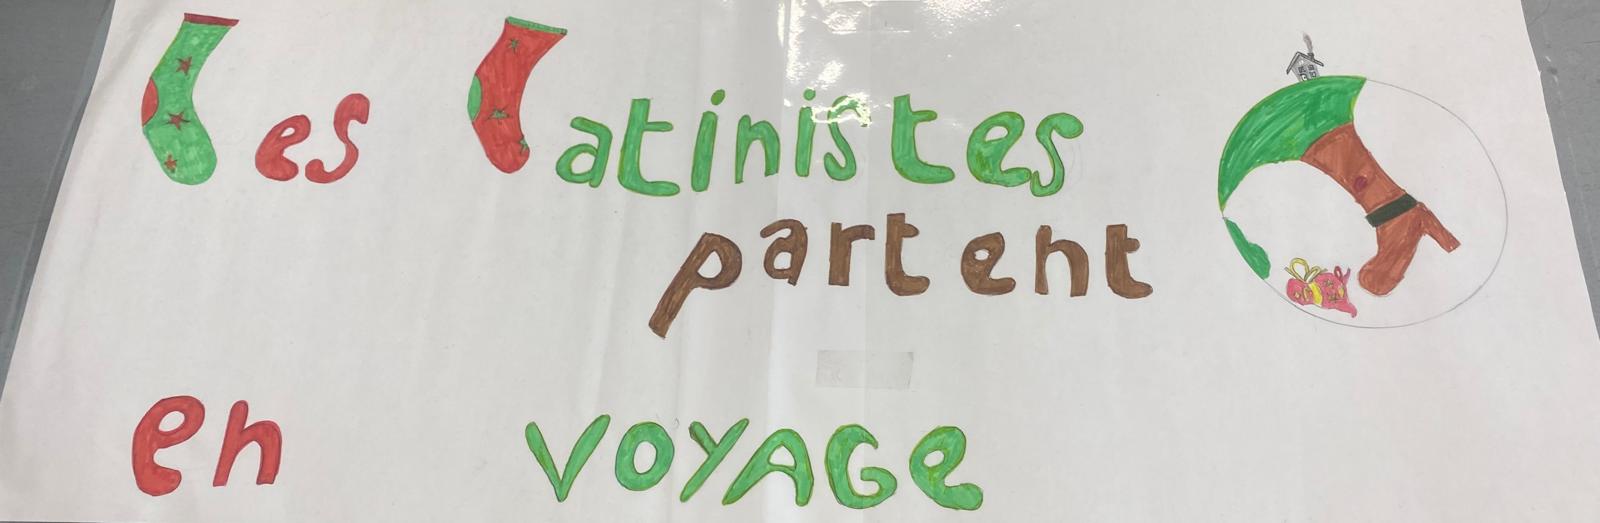 Les Latinistes
partent
en voyAGe